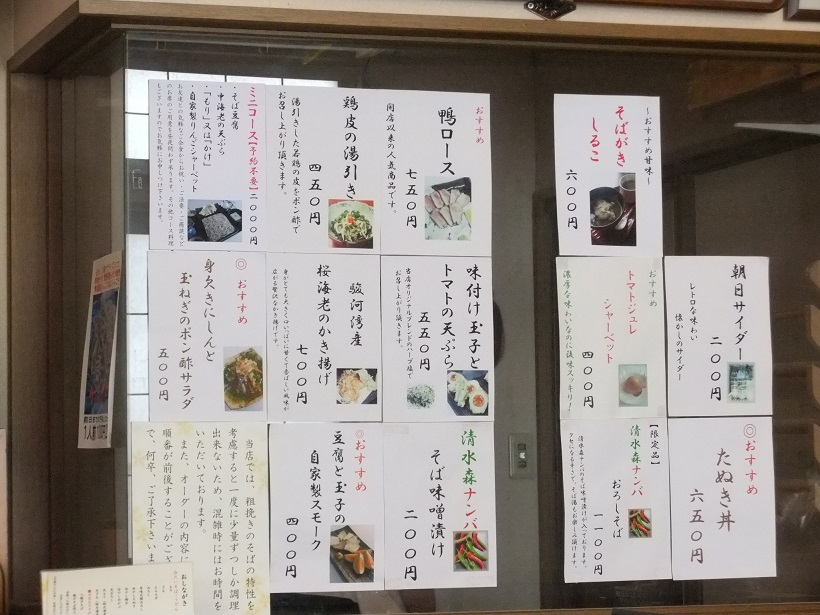 〜おすすめ甘味〜
そばがき
しるこ
六〇〇円
おすすめ
鴨ロース
七五〇円
開店以来の人気商品です。
鶏皮の湯引き
四五〇円
湯引きした若鶏の皮をポン酢で
お召し上がり頂きます。
ミニコース【予約不要】二〇〇〇円
・そば豆腐
・中海老の天ぷら
・「もり」又は「かけ」
・自家製りんごシャーベット
朝日サイダー
二〇〇円
レトロな味わい
懐かしのサイダー
おすすめ
トマトジュレ
シャーベット
四〇〇円
濃厚な味わいなのに後味スッキリ!
味付け玉子と
トマトの天ぷら
五五〇円
当店オリジナルブレンドのハーブ塩で
お召し上がり頂きます。
駿河湾産
桜海老のかき揚げ
七〇〇円
◎おすすめ
身欠きにしんと
玉ねぎのポン酢サラダ
五〇〇円
◎おすすめ
たぬき丼
六五〇円
【限定品】
清水森ナンバ
おろしそば
一一〇〇円
清水森ナンバ
そば味噌漬け
二〇〇円
◎おすすめ
豆腐と玉子の
自家製スモーク
四〇〇円
当店では、粗挽きのそばの特性を
考慮すると一度に少量ずつしか調理
出来ないため、混雑時にはお時間を
いただいております。
また、オーダーの内容に
順番が前後することがござ
で、何卒、ご了承下さいま
おしながき